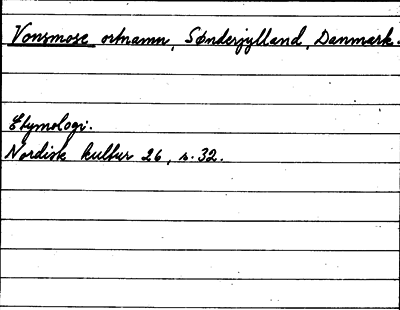 Vonsmose ortnamn, Sønderjylland, Danmark.
Etymologi.
Nordisk kultur 26, s. 32.